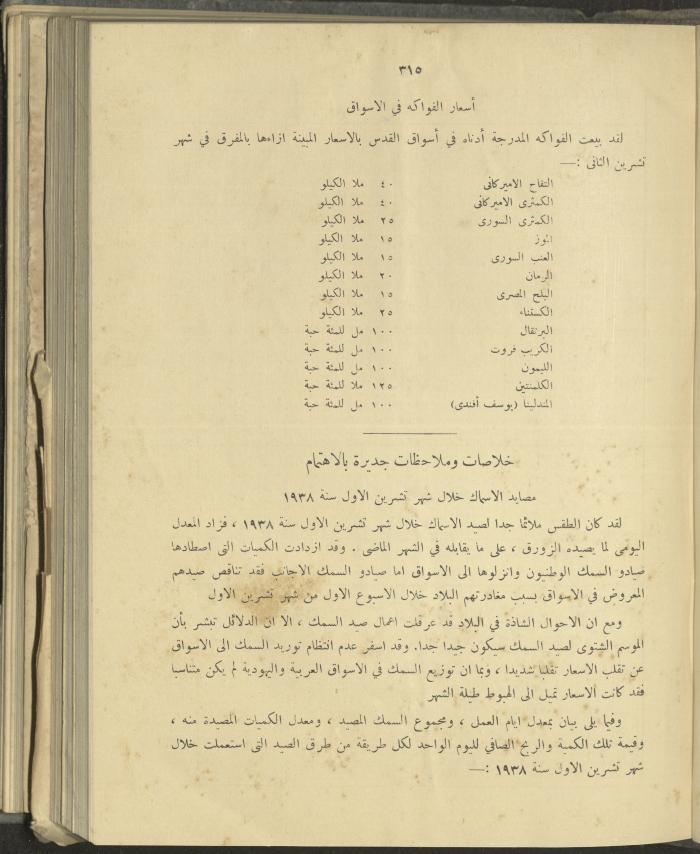 ٣١٥
أسعار الفواكه في الاسواق
لقد بيعت الفواكه المدرجة أدناه في أسواق القدس بالاسعار المبينة ازاءها بالمفرق في شهر
تشرين الثانى :—
التفاح الاميركانى ٤٠ ملا الكيلو
الكمثرى الاميركانى ٤٠ ملا الكيلو
الكمثرى السورى ٢٥ ملا الكيلو
الموز ١٥ ملا الكيلو
العنب السورى ١٥ ملا الكيلو
الرمان ٢٠ ملا الكيلو
البلح المصرى ١٥ ملا الكيلو
الكستناء ٢٥ ملا الكيلو
البرتقال ١٠٠ مل للمئة حبة
الكريب فروت ١٠٠ مل للمئة حبة
الليمون ١٠٠ مل للمئة حبة
الكلمنتين ١٢٥ ملا للمئة حبة
المندلينا (يوسف أفندى) ١٠٠ مل للمئة حبة
خلاصات وملاحظات جديرة بالاهتمام
مصايد الاسماك خلال شهر تشرين الاول سنة ١٩٣٨
لقد كان الطقس ملائما جدا لصيد الاسماك خلال شهر تشرين الاول سنة ١٩٣٨ ، فزاد المعدل
اليومى لما يصيده الزورق ، على ما يقابله في الشهر الماضى . وقد ازدادت الكميات التى اصطادها
صيادو السمك الوطنيون وانزلوها الى الاسواق اما صيادو السمك الاجانب فقد تناقص صيدهم
المعروض في الاسواق بسبب مغادرتهم البلاد خلال الاسبوع الاول من شهر تشرين الاول
ومع ان الاحوال الشاذة في البلاد قد عرقلت اعمال صيد السمك ، الا ان الدلائل تبشر بأن
الموسم الشتوى لصيد السمك سيكون جيدا جدا. وقد اسفر عدم انتظام توريد السمك الى الاسواق
عن تقلب الاسعار تقلبا شديدا ، وبما ان توزيع السمك في الاسواق العربية واليهودية لم يكن متناسبا
فقد كانت الاسعار تميل الى الهبوط طيلة الشهر
وفيما يلى بيان بمعدل ايام العمل ، ومجموع السمك المصيد ، ومعدل الكميات المصيدة منه ،
وقيمة تلك الكمية والربح الصافي لليوم الواحد لكل طريقة من طرق الصيد التى استعملت خلال
شهر تشرين الاول سنة ١٩٣٨ :—